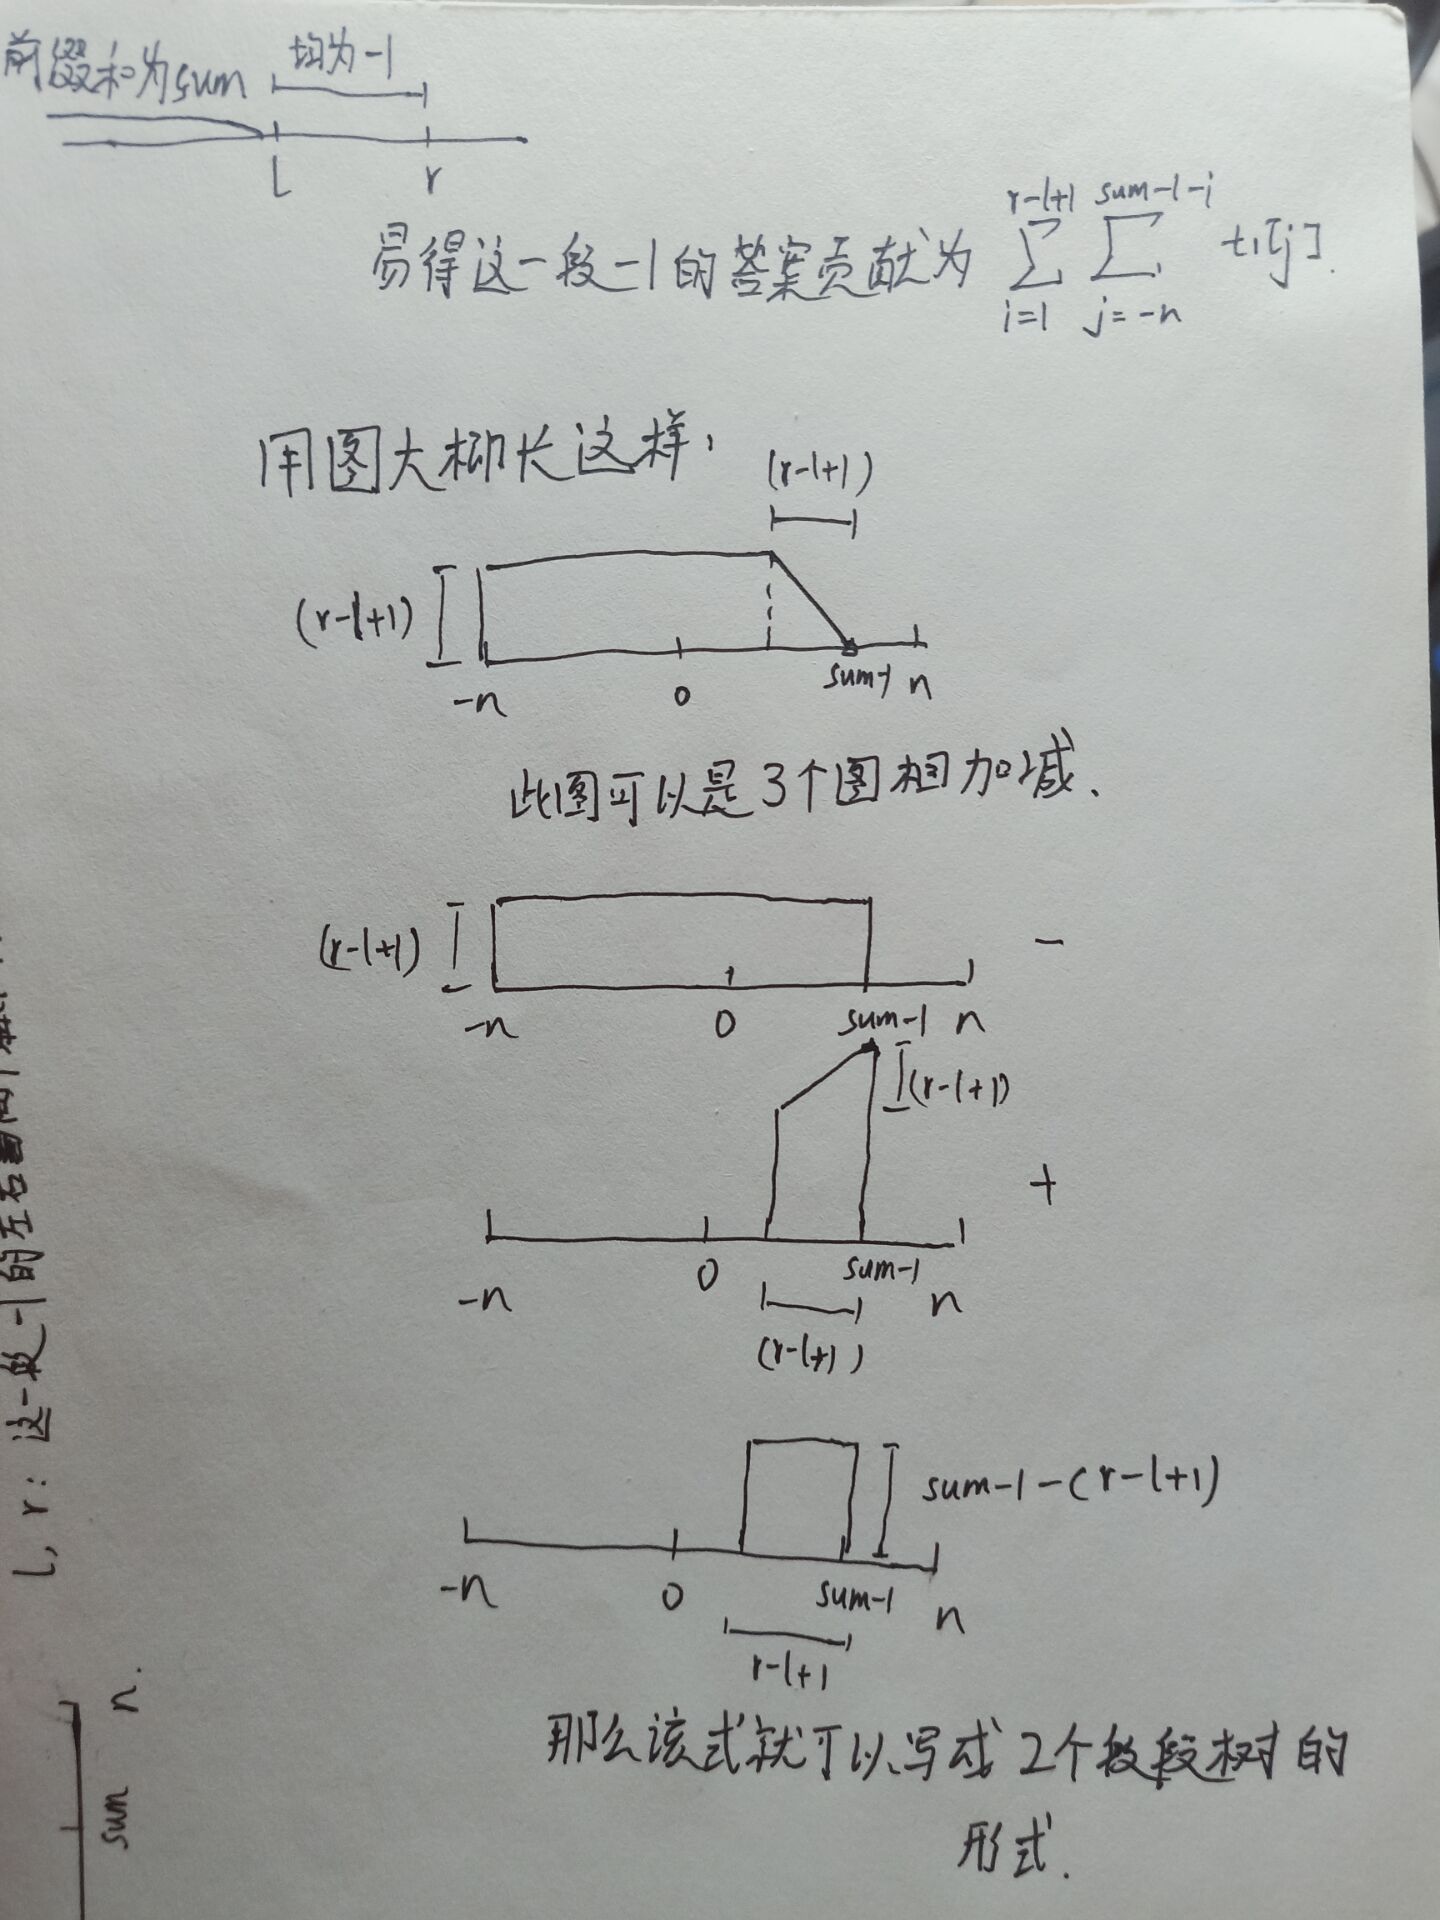 前缀和为sum
均为-1
l r
易得这一段-1的答案贡献为 \sum_{i=1}^{r-l+1} \sum_{j=-n}^{sum-1-i} t_1[j].
用图大概长这样,
(r-l+1)
(r-l+1)
-n 0 sum-1 n
此图可以是3个图相加减.
(r-l+1) -
-n 0 sum-1 n
(r-l+1)
+
-n 0 sum-1 n
(r-l+1)
sum-1-(r-l+1)
-n 0 sum-1 n
r-l+1
那么该式就可以写成2个线段树的
形式.
l, r: 这一段-1的左右
sum n.